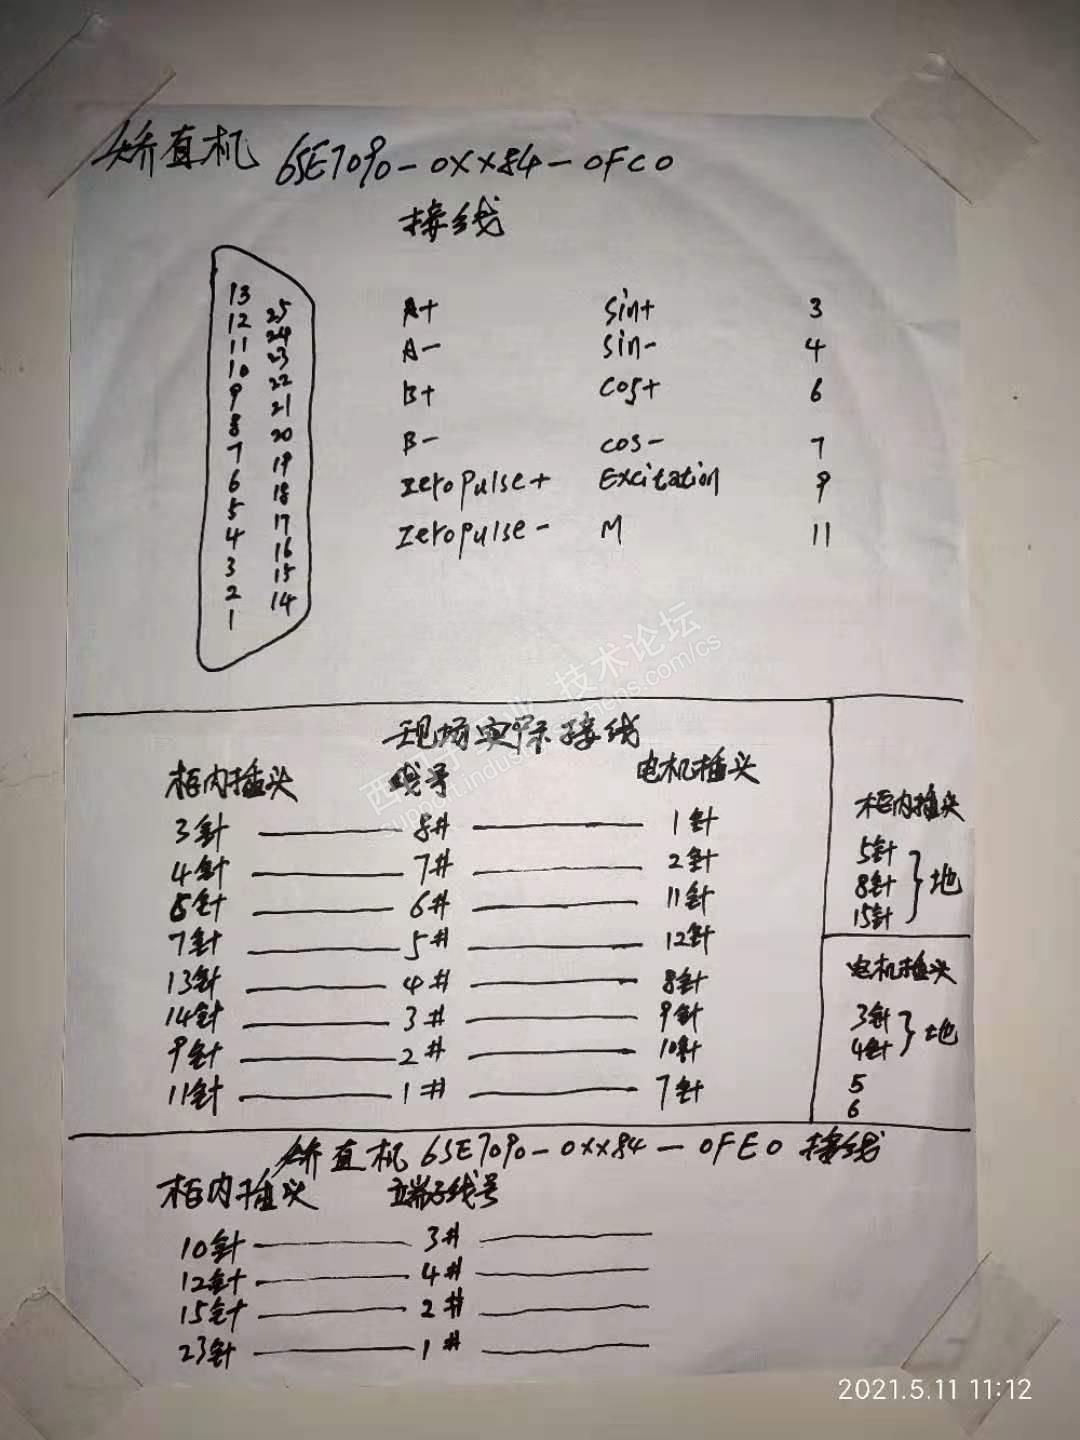 矫直机 6SE7090-0XX84-0FC0
接线
13
25
12
24
11
23
10
22
9
21
8
20
7
19
6
18
5
17
4
16
3
15
2
14
1
A+ sin+ 3
A- sin- 4
B+ cos+ 6
B- cos- 7
zeropulse+ Excitation 9
zeropulse- M 11
现场实际接线
柜内插头 线号 电机插头
3针 8# 1针
4针 7# 2针
6针 6# 11针
7针 5# 12针
13针 4# 8针
14针 3# 9针
9针 2# 10针
11针 1# 7针
柜内插头
5针
8针
15针
地
电机插头
3针
4针
地
5
6
矫直机 6SE7090-0XX84-0FE0 接线
柜内插头 端子线号
10针 3#
12针 4#
15针 2#
23针 1#
技术论坛
support.industry.siemens.com/cs
2021.5.11 11:12